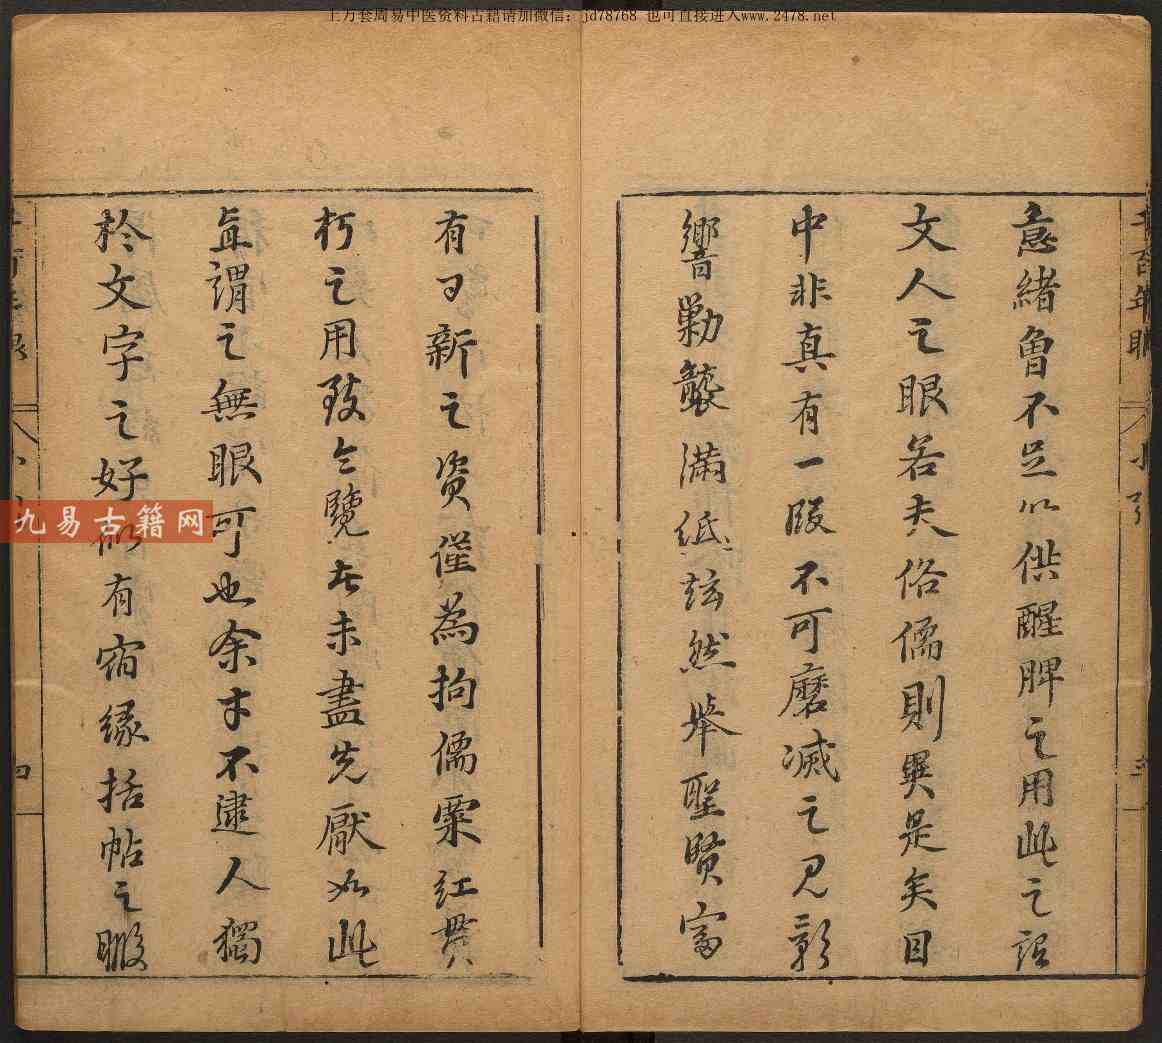 上万套周易中医资料古籍请加微信：jd78768 也可直接进入www.2478.net
千百年眼 小引
意緒魯不足以供醒脾之用此之謂
文人之眼若夫俗儒則異是矣目
中非真有一段不可磨滅之見影
響勦襲滿紙玆然舉聖賢富
有日新之資僅為拘儒粟紅貫
朽之用致令覽者未盡先厭如此
直謂之無眼可也余才不逮人獨
於文字之好似有宿緣括帖之暇
四
九易古籍网